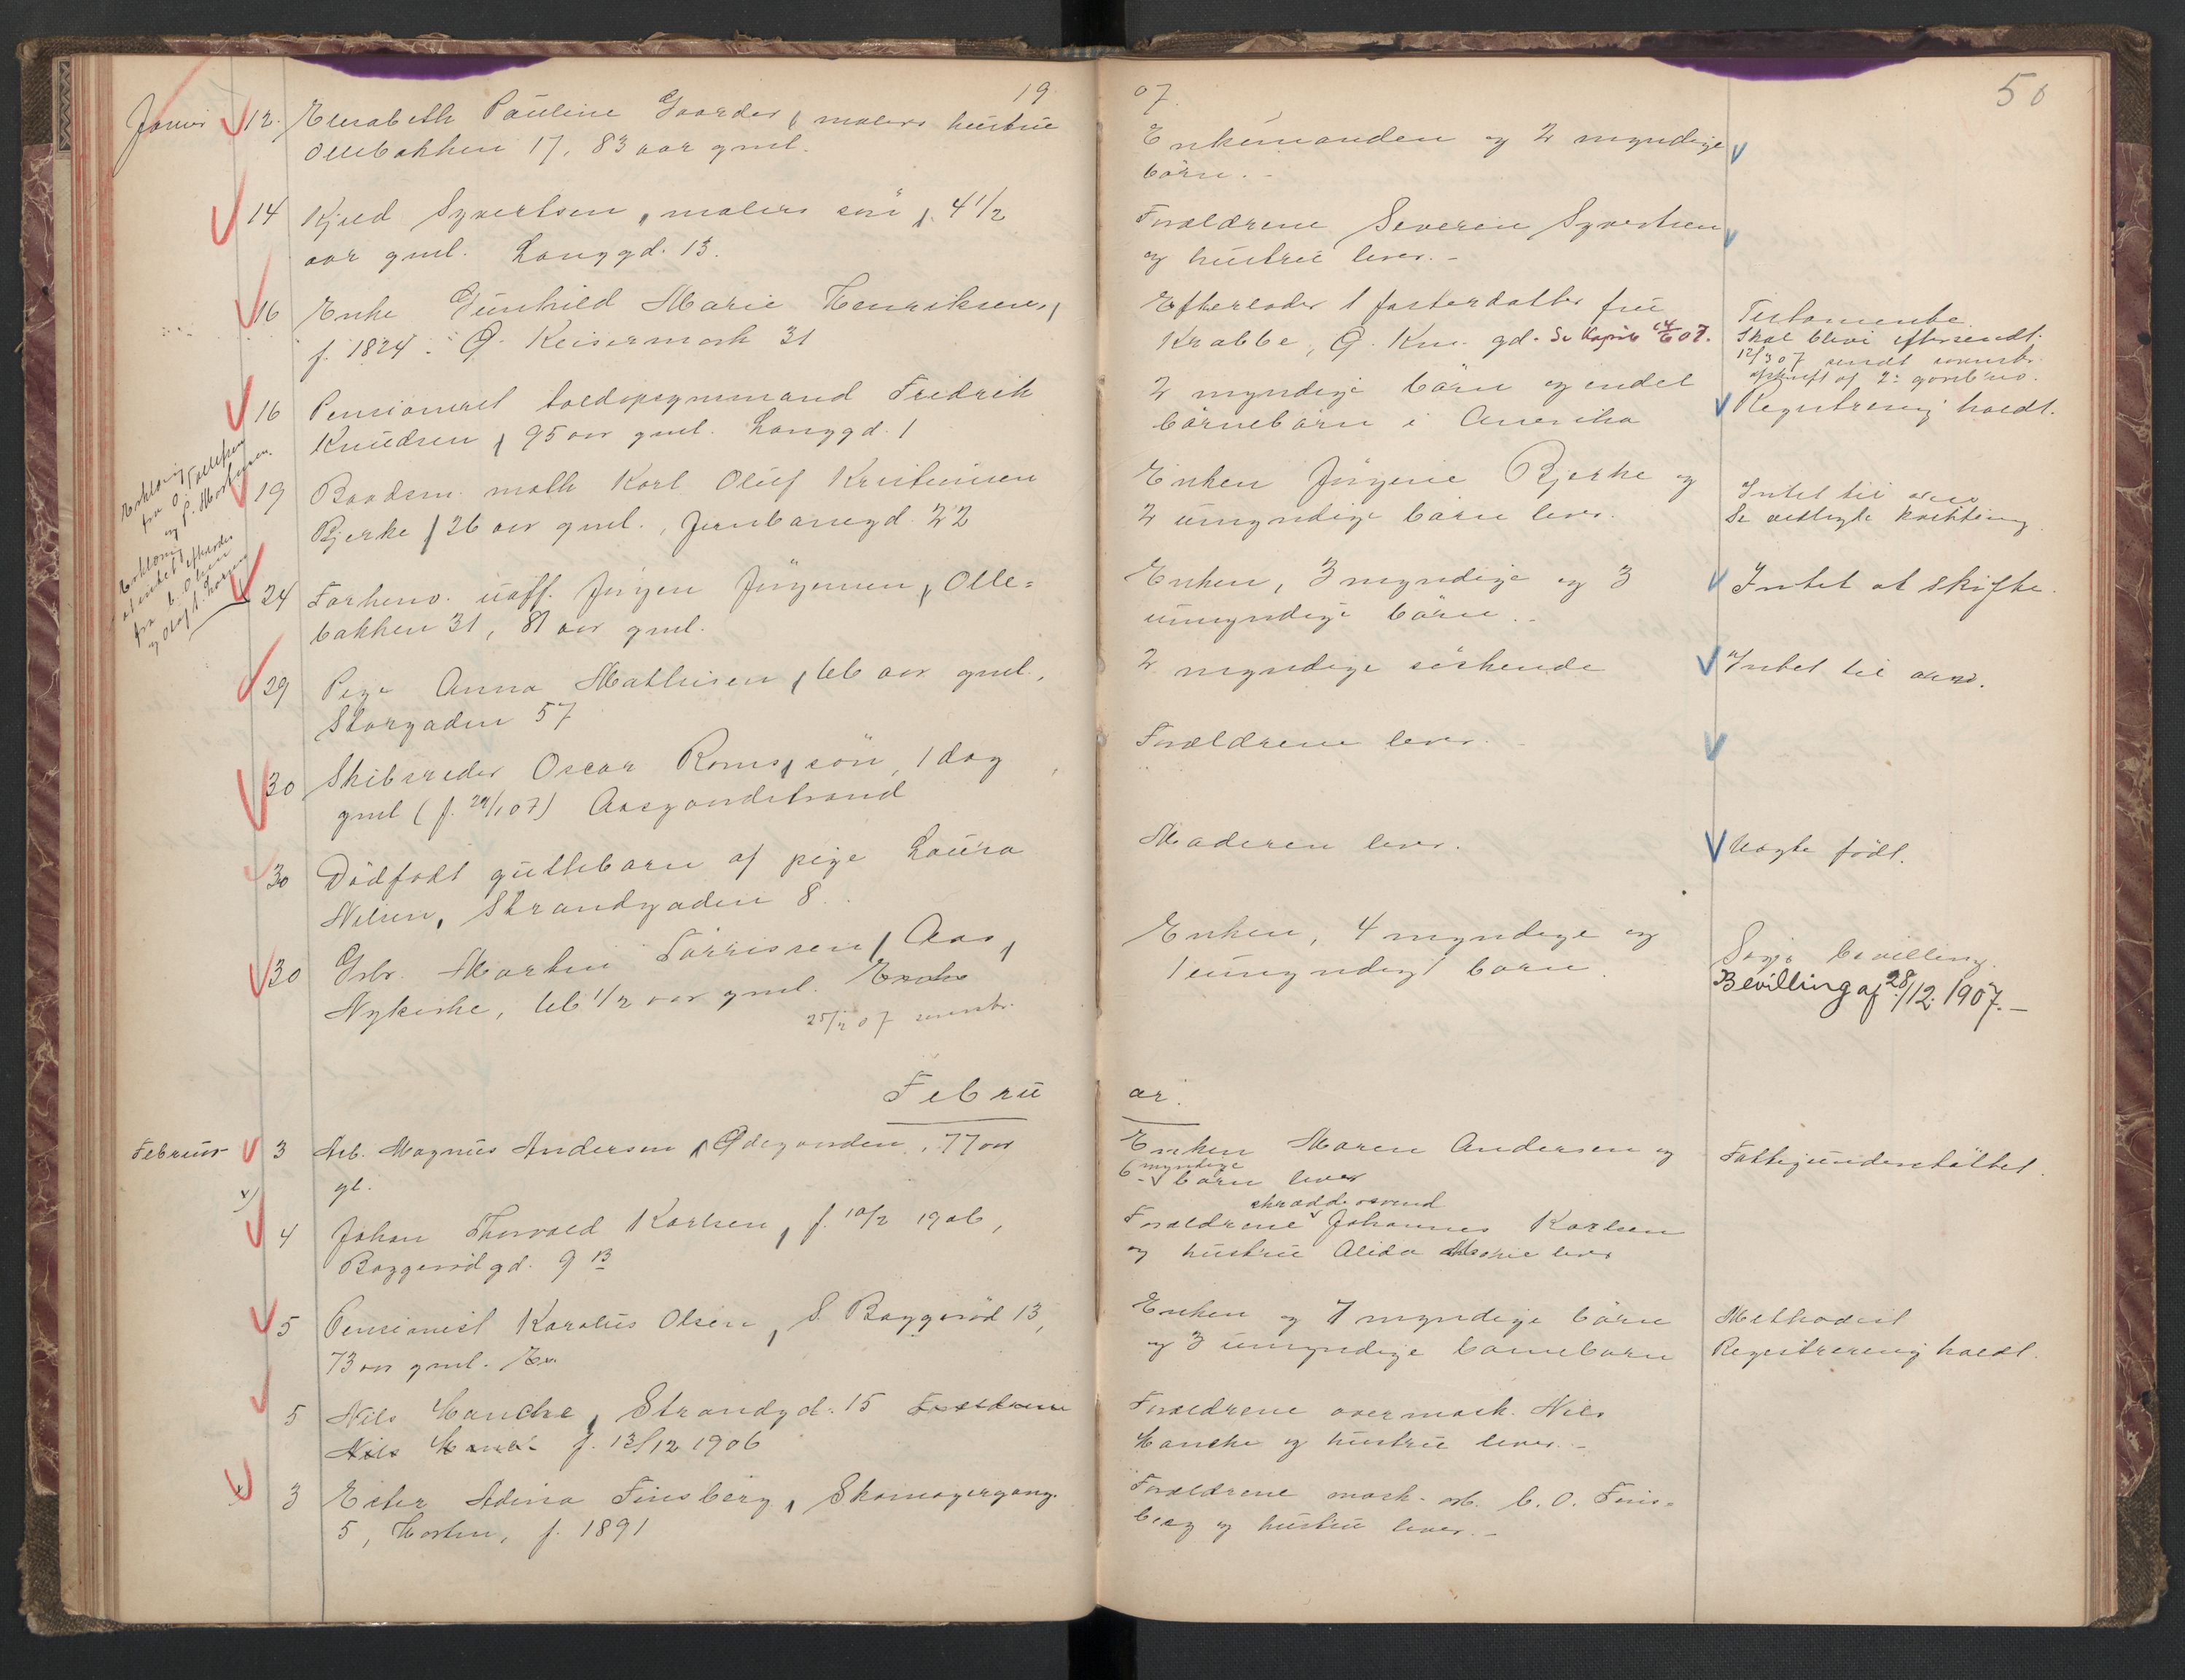 19
Januar 12. Elisabeth Pauline Gaarder, malers hustru
Ollebakken 17, 83 aar gml.
14 Kjeld Syvertsen, malers søn, 4 1/2
aar gml. Langgd. 13.
16 Enke Gunhild Marie Henriksen,
f. 1824. Ø. Keisermark 31
16 Pensioneret toldopsynsmand Fredrik
Knudsen, 95 aar gml. Langgd. 1
19 Baadsm. math Karl Oluf Kristiansen
Bjerke, 26 aar gml., Jernbanegd. 22
24 Forhenv. uoff. Jørgen Jørgensen, Olle=
bakken 31, 81 aar gml.
29 Pige Anna Mathisen, 66 aar gml.,
Storgaden 57
30 Skibsreder Oscar Roms søn, 1 dag
gml (f. 29/1 07) Aasgaardstrand
30 Dødfødt guttebarn af pige Laura
Nilsen, Strandgaden 8.
30 Gbr. Martin Tørrissen, Aas,
Nykirke, 66 1/2 aar gml. Enke
25/2 07
Febru
Februar 3 Arb. Magnus Andersen, Ødegaarden, 77 aar
gl.
4 Johan Thorvald Karlsen, f. 10/2 1906,
Baggerødgd. 9 B
5 Pensionist Karolus Olsen, S. Baggerød 13,
73 aar gml. En
5 Nils Hanche, Strandgd. 15 Forældrene
Nils Hanche f. 13/12 1906
3 Ester Adina Finsberg, Skomagergang.
5, Horten, f. 1891
Erklæring
fra O. Tallefsen
og P. Mortensen.
Erklæring
fra C. Olsen
og Olaf
07.
50
Enkemanden og 2 myndige
børn. -
Forældrene Severin Syvertsen
og hustru lever. -
Efterlader 1 fosterdatter fru
Krabbe, Ø. Km. gd. 07.
Testamente
Skal blive eftersendt.
12/3 07 sendt
afskrift af
2 myndige børn og endel
børnebørn i Amerika
Registrering holdt.
Enken Jørgine Bjerke og
2 umyndige børn lever.
Intet til arv
Se vedlagte
Enken, 3 myndige og 3
umyndige børn. -
Intet at skifte.
2 myndige søskende
Intet til arv.
Forældrene lever. -
Moderen lever.
Uægte født.
Enken, 4 myndige og
1 umyndigt barn.
Søgt bevilling.
Bevilling af 28/12. 1907. -
ar.
Enken Maren Andersen og
6 myndige børn lever
Fattigunderstøttet.
skrædersvend
Forældrene Johannes Karlsen
og hustru Alida Marie lever
Enken og 7 myndige børn
og 3 umyndige barnebarn
Methodist
Registrering holdt.
Forældrene overmask. Nils
Hanche og hustru lever. -
Forældrene mask. arb. C. O. Fins=
berg og hustru lever. -